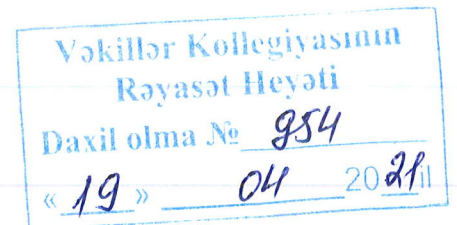 Vəkillər Kollegiyasının
Rəyasət Heyəti
Daxil olma № 954
« 19 » 04 2021 il